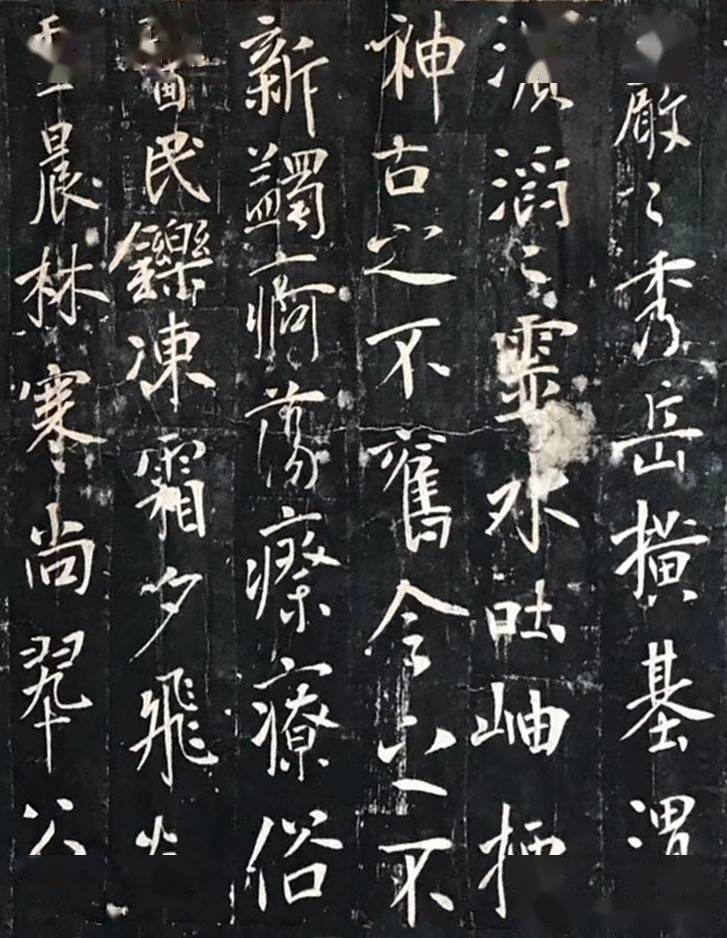 巖々秀岳橫基渭
濱滔々靈水吐岫
神古之不舊今之不
新蠲痾蕩瘵療俗
民鑠凍霜夕飛
晨林寒尚翠